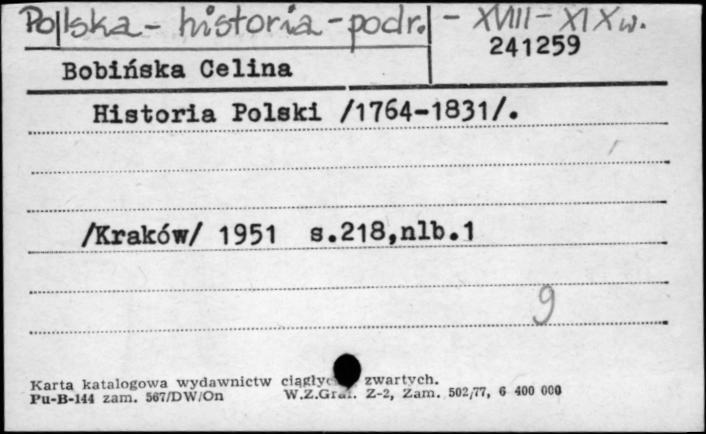 Polska - historia - podr. - XVIII - XIX w.
241259
Bobińska Celina
Historia Polski /1764-1831/.
/Kraków/ 1951 s.218,nlb.1
9
Karta katalogowa wydawnictw zwartych.
Pu-B-144 zam. 567/DW/On W.Z.Graf. Z-2, Zam. 502/77, 6 400 000